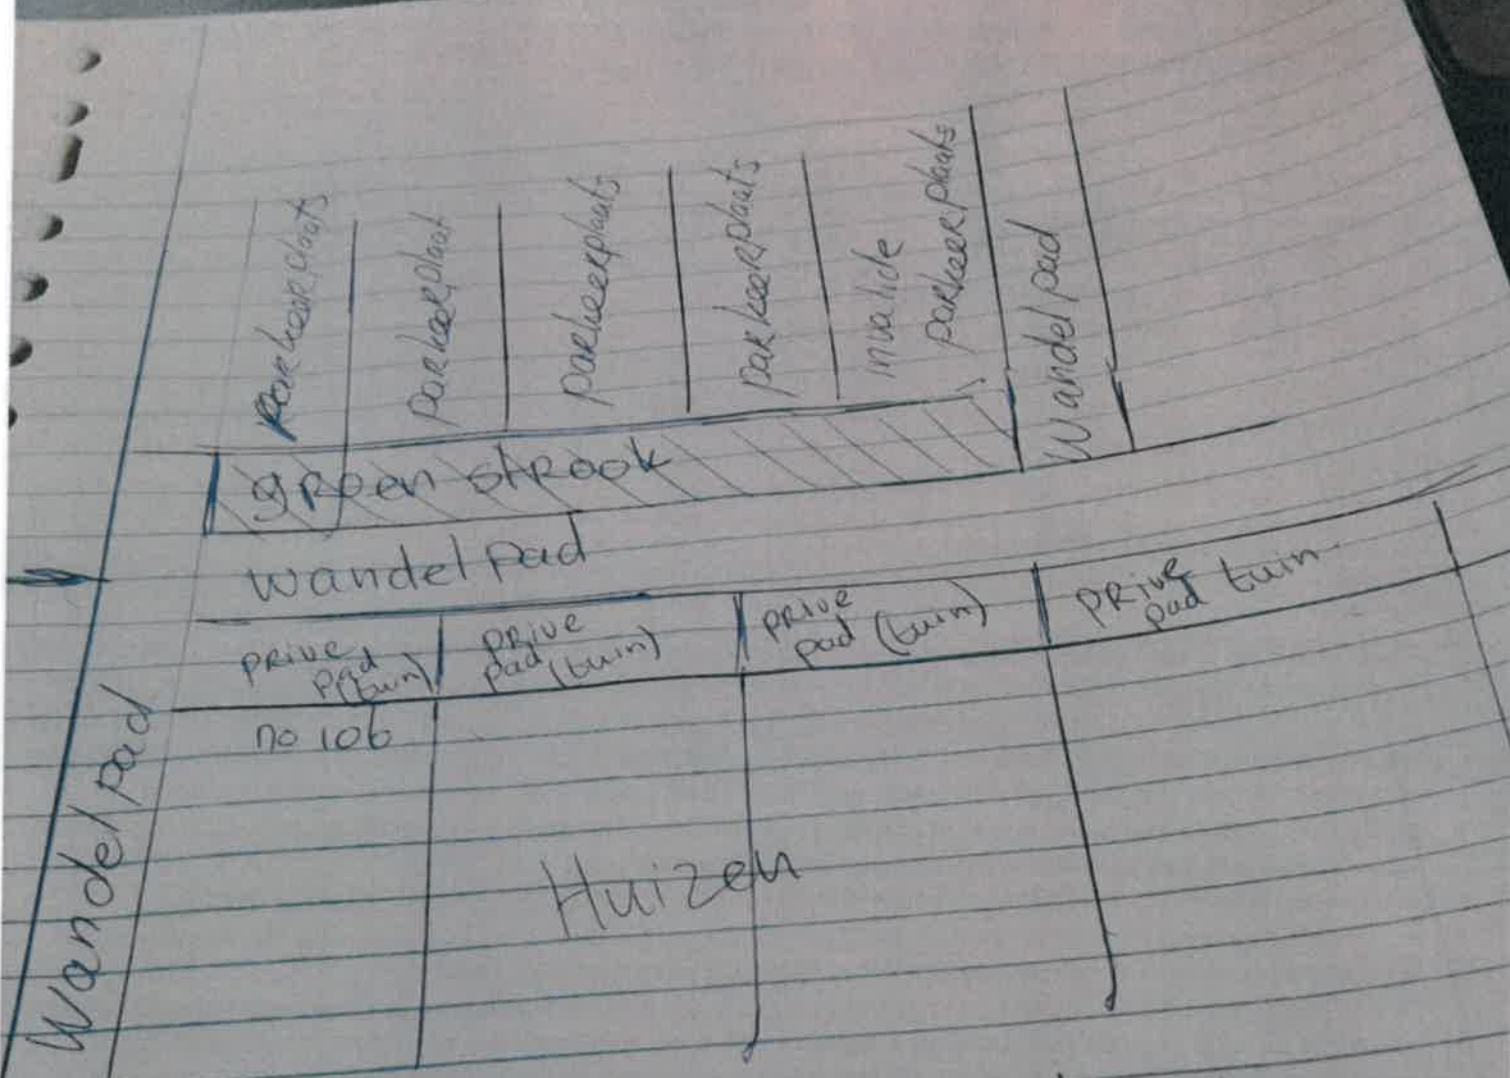 parkeerplaats
parkeerplaat
parkeerplaats
parkeerplaats
invalide
parkeerplaats
wandelpad
groen strook
wandelpad
prive
pad
(tuin)
prive
pad (tuin)
prive
pad (tuin)
prive
pad tuin
no 106
Huizen
Wandelpad